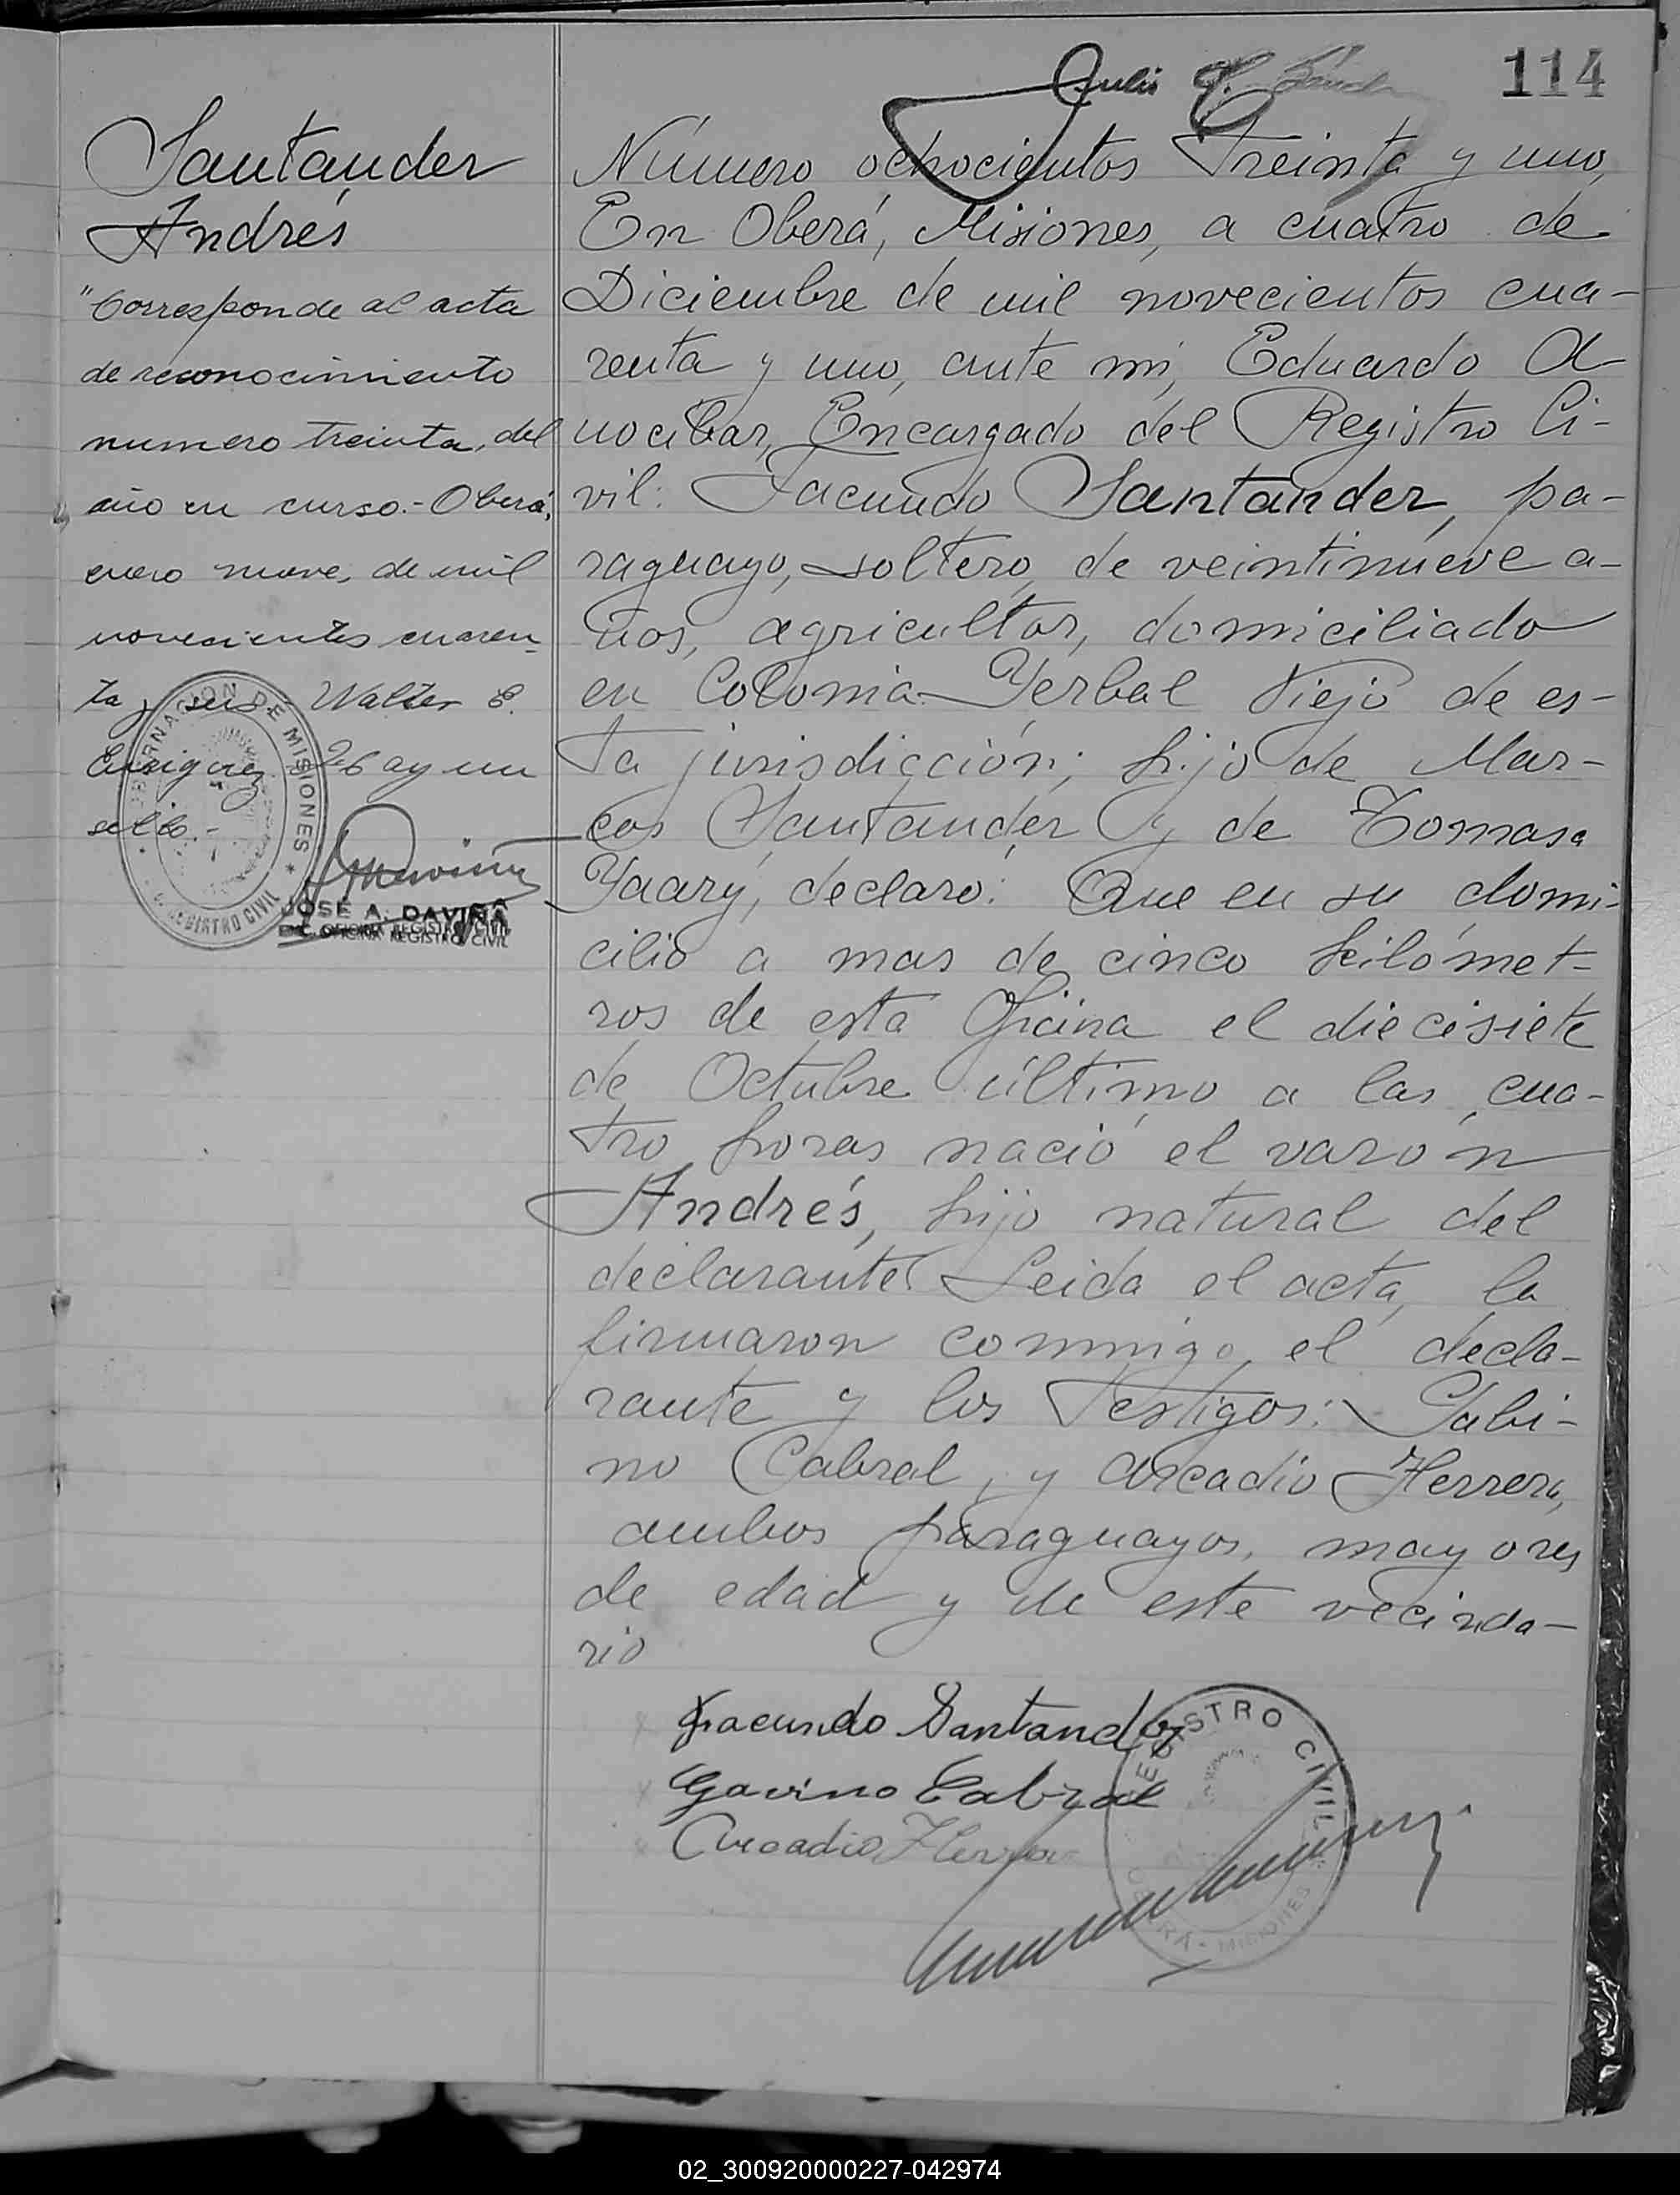 114
Santander
Andrés
"Corresponde al acta
de reconocimiento
numero treinta, del
año en curso.- Oberá,
enero nueve, de mil
novecientos cuaren-
ta y seis.- Walter E.
Hay un
sello.-
GOBERNACION DE MISIONES
REGISTRO CIVIL
JOSÉ A. DAVIÑA
ENC. OFICINA REGISTRO CIVIL
Julio
Número ochocientos Treinta y uno,
En Oberá, Misiones, a cuatro de
Diciembre de mil novecientos cua-
renta y uno, ante mi, Eduardo A-
nocibar, Encargado del Registro Ci-
vil: Facundo Santander, pa-
raguayo, soltero, de veintinueve a-
ños, agricultor, domiciliado
en Colonia Yerbal Viejo de es-
ta jurisdicción; hijo de Mar-
cos Santander y de Tomasa
Yaary, declaró: Que en su domi-
cilio a mas de cinco kilómet-
ros de esta Oficina el diecisiete
de Octubre último a las cua-
tro horas nació el varón
Andrés, hijo natural del
declarante. Leida el acta, la
firmaron conmigo, el decla-
rante y los Testigos: Gabi-
no Cabral, y Arcadio Herrera,
ambos paraguayos, mayores
de edad y de este vecinda-
rio
Facundo Santander
Gavino Cabral
Arcadio Herrera
REGISTRO CIVIL
OBERÁ - MISIONES
02_300920000227-042974